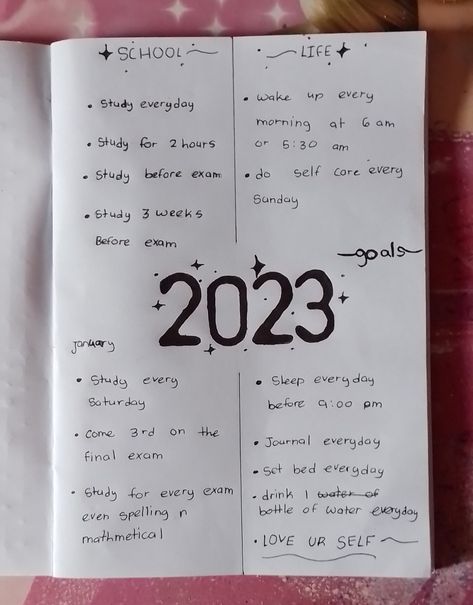 SCHOOL
• Study everyday
• Study for 2 hours
• Study before exam
• Study 3 weeks
Before exam
LIFE
• Wake up every
morning at 6 am
or 5:30 am
• do self care every
Sunday
goals
2023
january
• Study every
Saturday
• Come 3rd on the
final exam
• Study for every exam
even spelling n
mathmetical
• Sleep everyday
before 9:00 pm
• Journal everyday
• Set bed everyday
• drink 1 water of
bottle of water everyday
• LOVE UR SELF